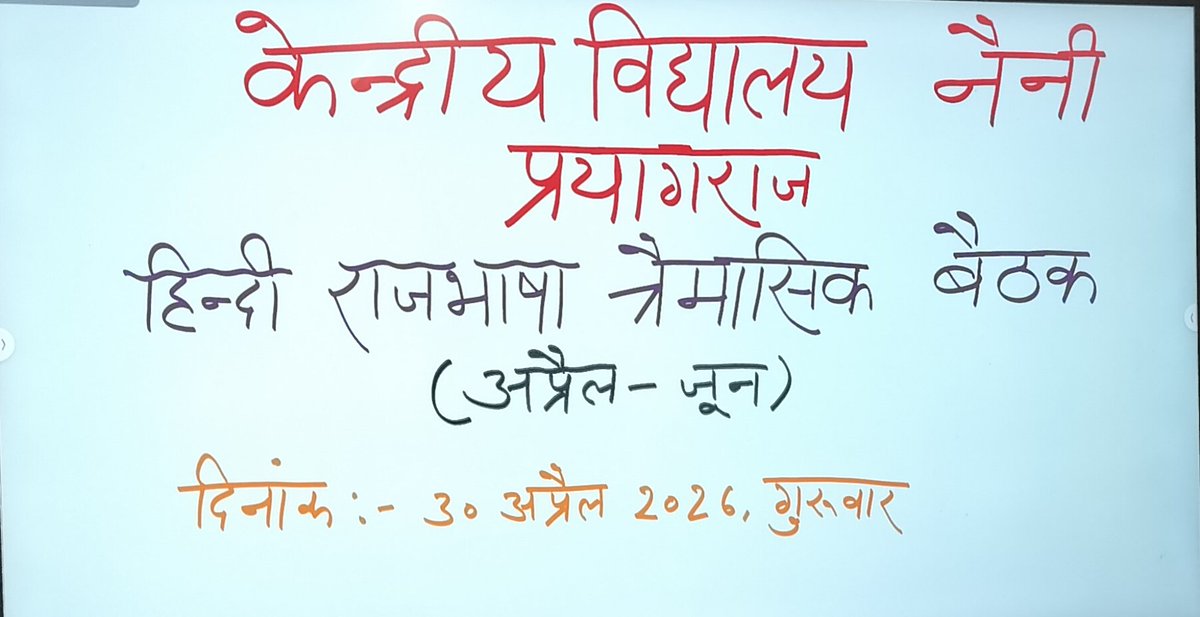 केन्द्रीय विद्यालय नैनी
प्रयागराज
हिन्दी राजभाषा त्रैमासिक बैठक
(अप्रैल - जून)
दिनांक :- 30 अप्रैल 2026, गुरूवार